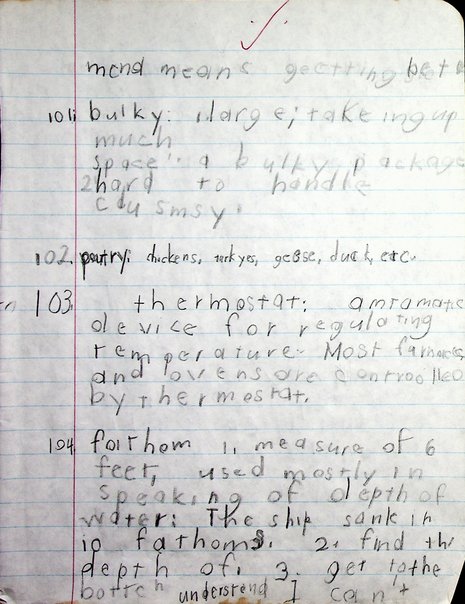 mend means geetting bet
101. bulky: 1large; take ing up
much
space: a bulky package
2hard to handle
cdusmsy.
102. poutry: chickens, turkyes, geese, duck, etc.
103. thermostat: amtomatic
device for regulating
temperature. Most furnaces
and ovens are controolled
by thermostat.
104. fathom 1. measure of 6
feet, used mostly in
speaking of depth of
water: The ship sank in
10 fathoms. 2. find the
depth of. 3. get tothe
understand I can't